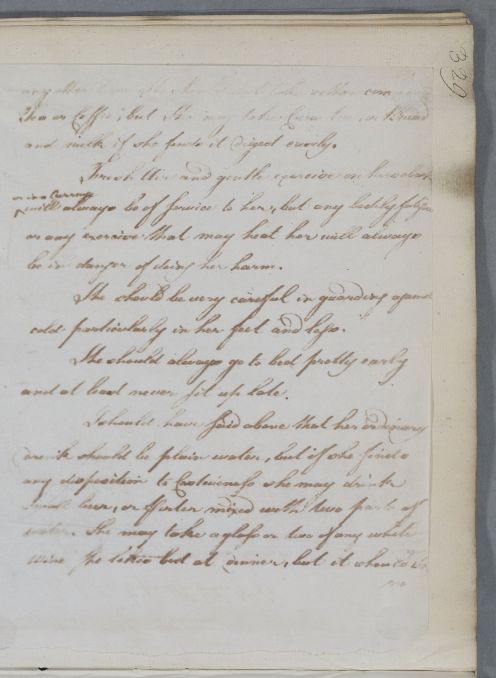 329
any other
Tea or Coffee; but She may take Cocoa tea, or Bread
and milk if she finds it digest easily.
Fresh Air and gentle exercise on horseback
or in a Carriage
will always be of Service to her, but any bodily fatigue
or any exercise that may heat her will always
be in danger of doing her harm.
She should be very careful in guarding against
cold particularly in her feet and legs.
She should always go to bed pretty early
and at least never sit up late.
I should have said above that her ordinary
drink should be plain water, but if she finds
any disposition to Costiveness she may drink
Small beer, or Porter mixed with two parts of
water. She may take a glass or two of any white
wine She likes best at dinner, but it should be